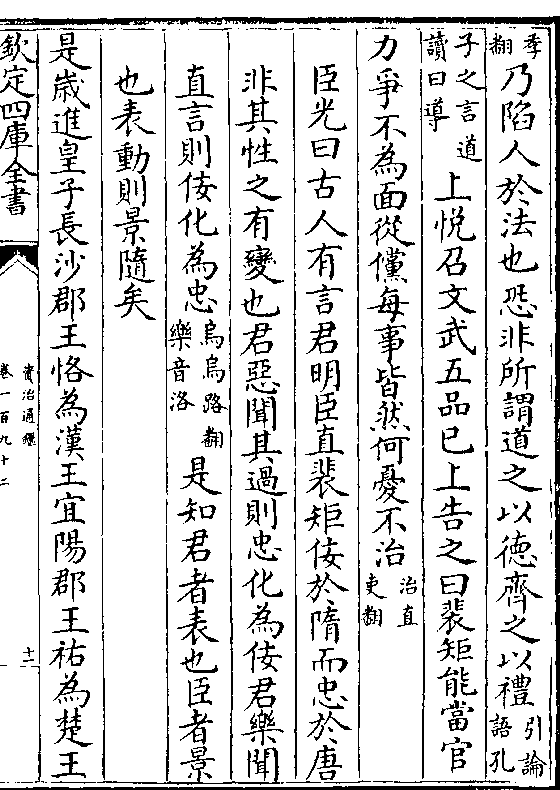 季翻乃陷人於法也恐非所謂道之以德齊之以禮引論語孔
子之言道讀曰導上悦召文武五品已上告之曰裴矩能當官
力爭不為面從儻每事皆然何憂不治治直吏翻
臣光曰古人有言君明臣直裴矩佞於隋而忠於唐
非其性之有變也君惡聞其過則忠化為佞君樂聞
直言則佞化為忠惡烏路翻樂音洛是知君者表也臣者景
也表動則景隨矣
是嵗進皇子長沙郡王恪為漢王宜陽郡王祐為楚王
欽定四庫全書
資治通鑑
卷一百九十二
十二